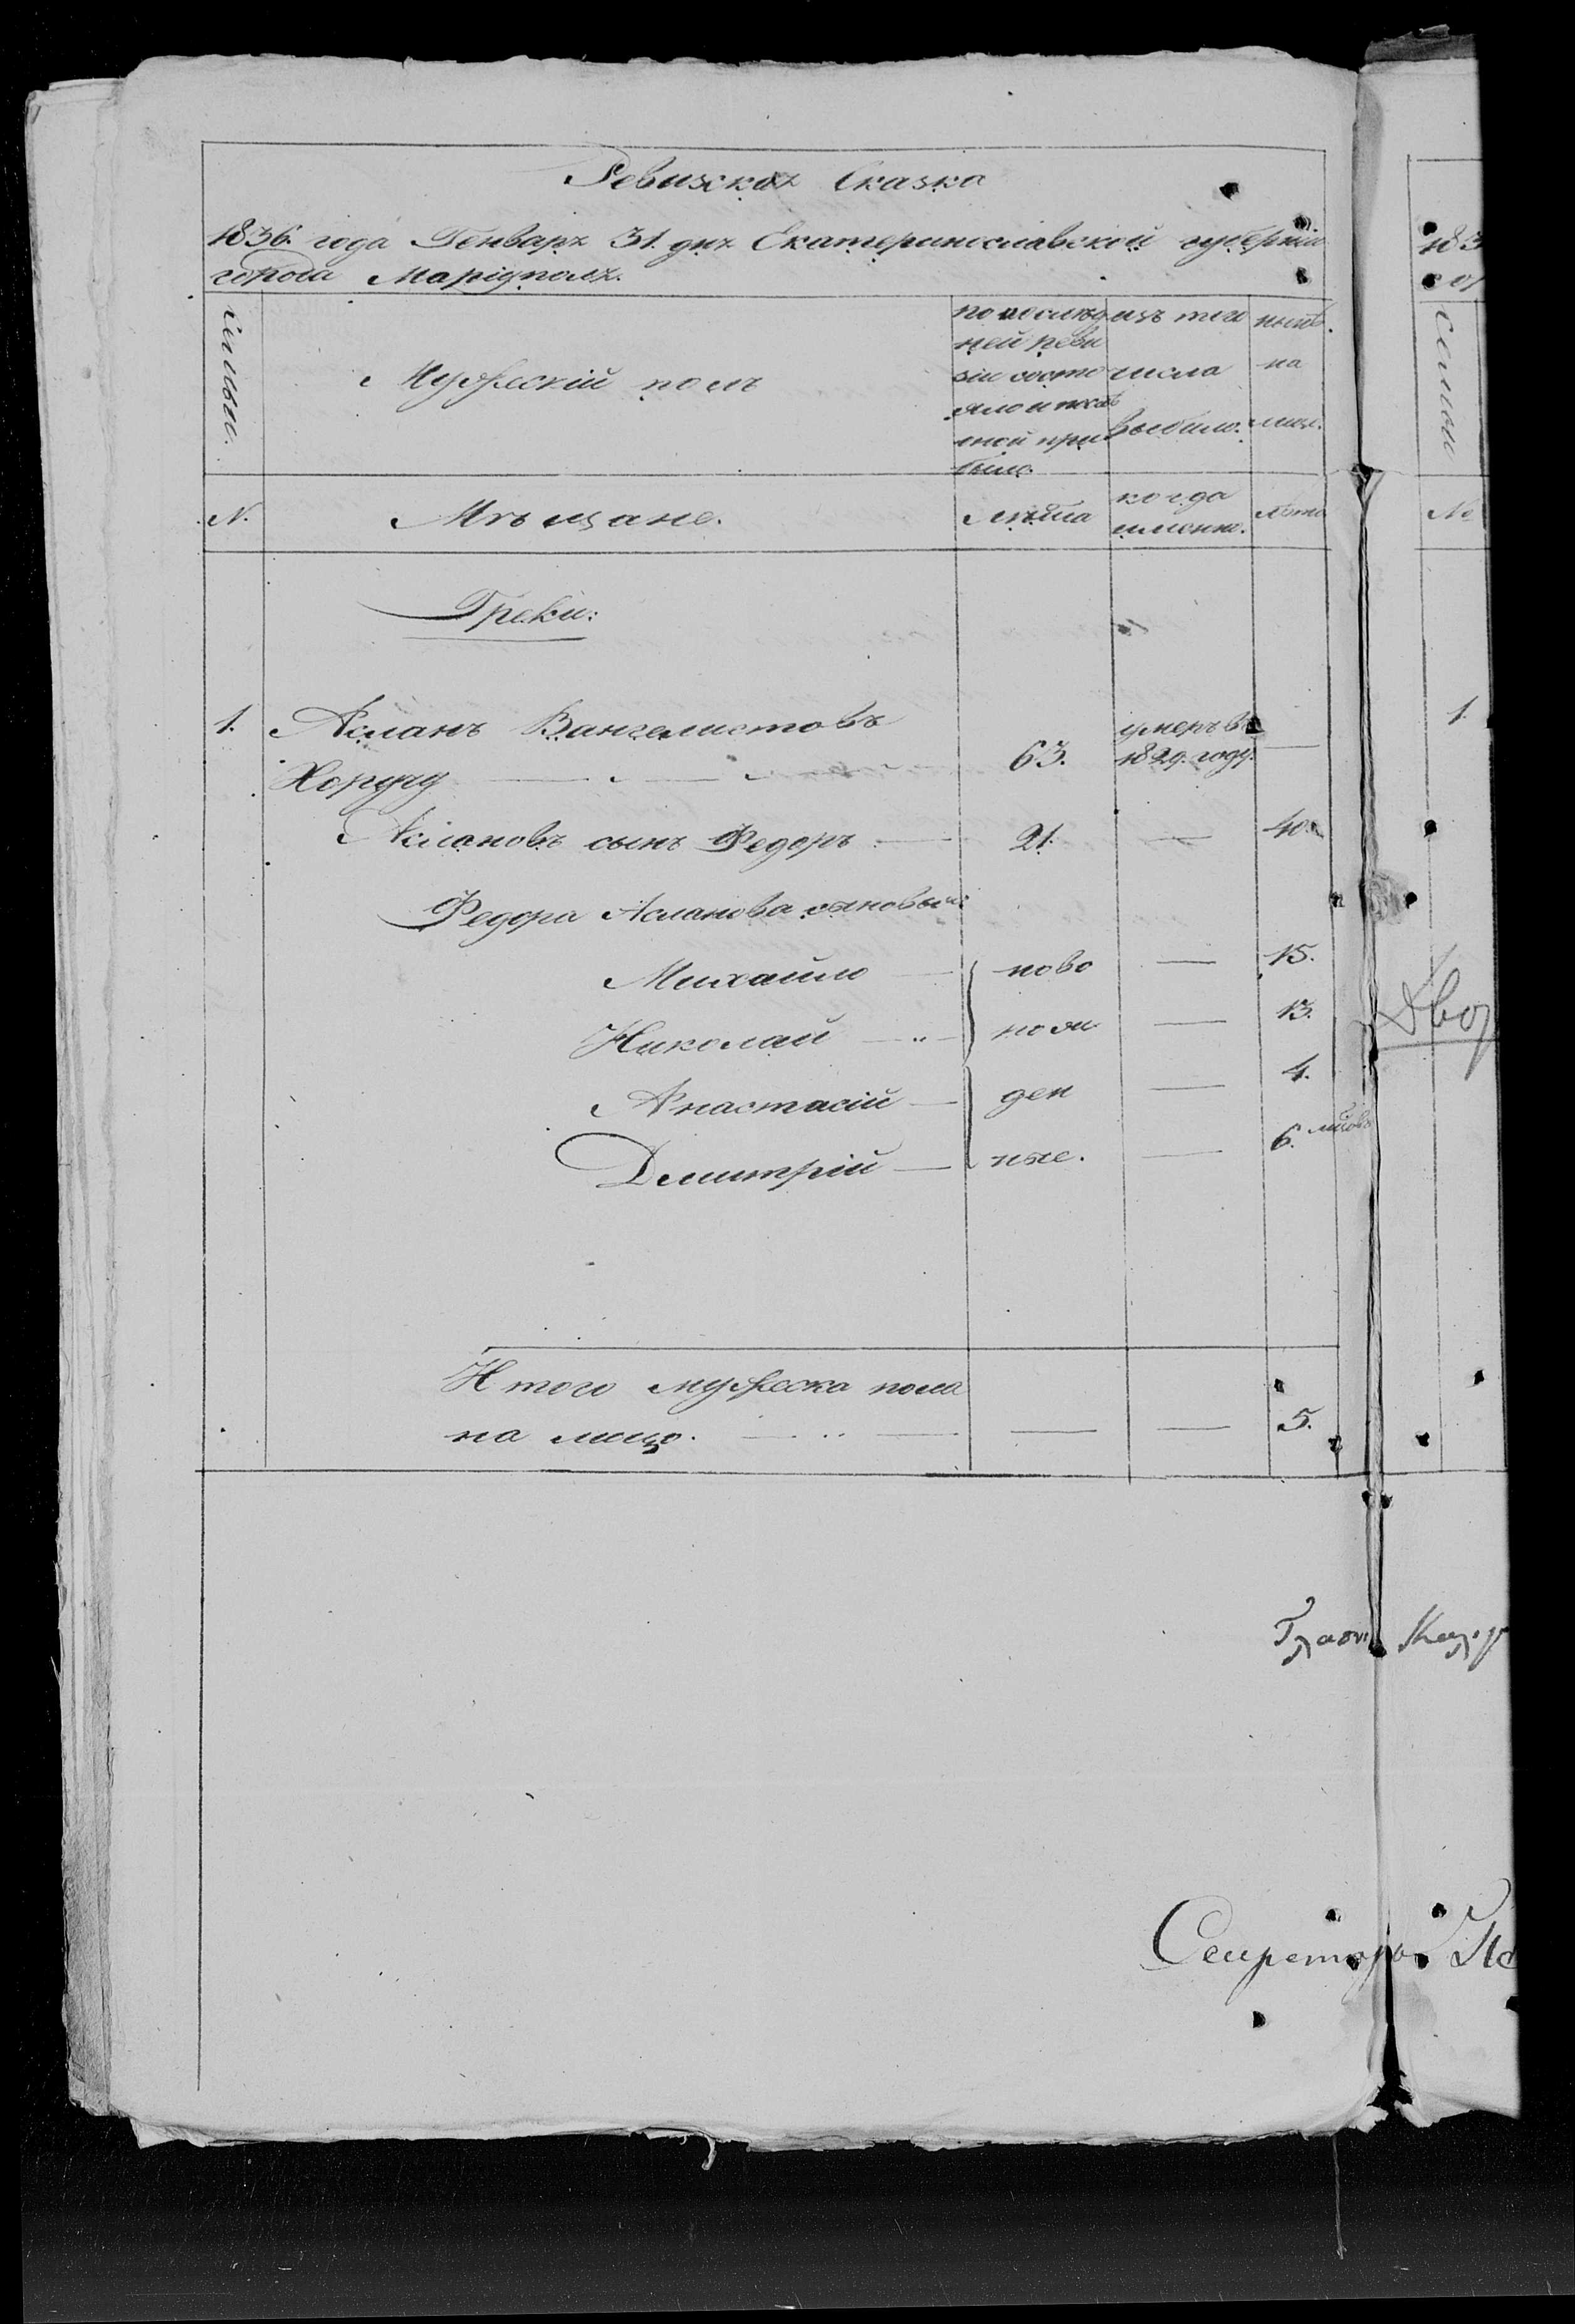 Ревизская Сказка
1836. года Генваря 31. дня Екатеринославской губерніи
города Маріуполя.
Семьи.
Мужескій полъ
по послѣд
ней реви
зіи состо
яло и послѣ
оной при
было.
изъ того
числа
выбыло.
нынѣ
на
лицо.
N.
Мѣщане.
Лѣта
когда
именно.
Лѣта
Греки:
1. Асланъ Вангелистовъ
Хорузу 63. умеръ въ
1829. году. —
Аслановъ сынъ Федоръ — 21. — 40.
Федора Асланова сыновья:
Михайло — ново — 15.
Николай — рож — 13.
Анастасій — ден — 4.
Дмитрій — ные. — 6. мѣсяц
Итого мужеска пола
на лицо. — — — 5.
183
гор
Семьи
№
1.
Двор
Секретарь